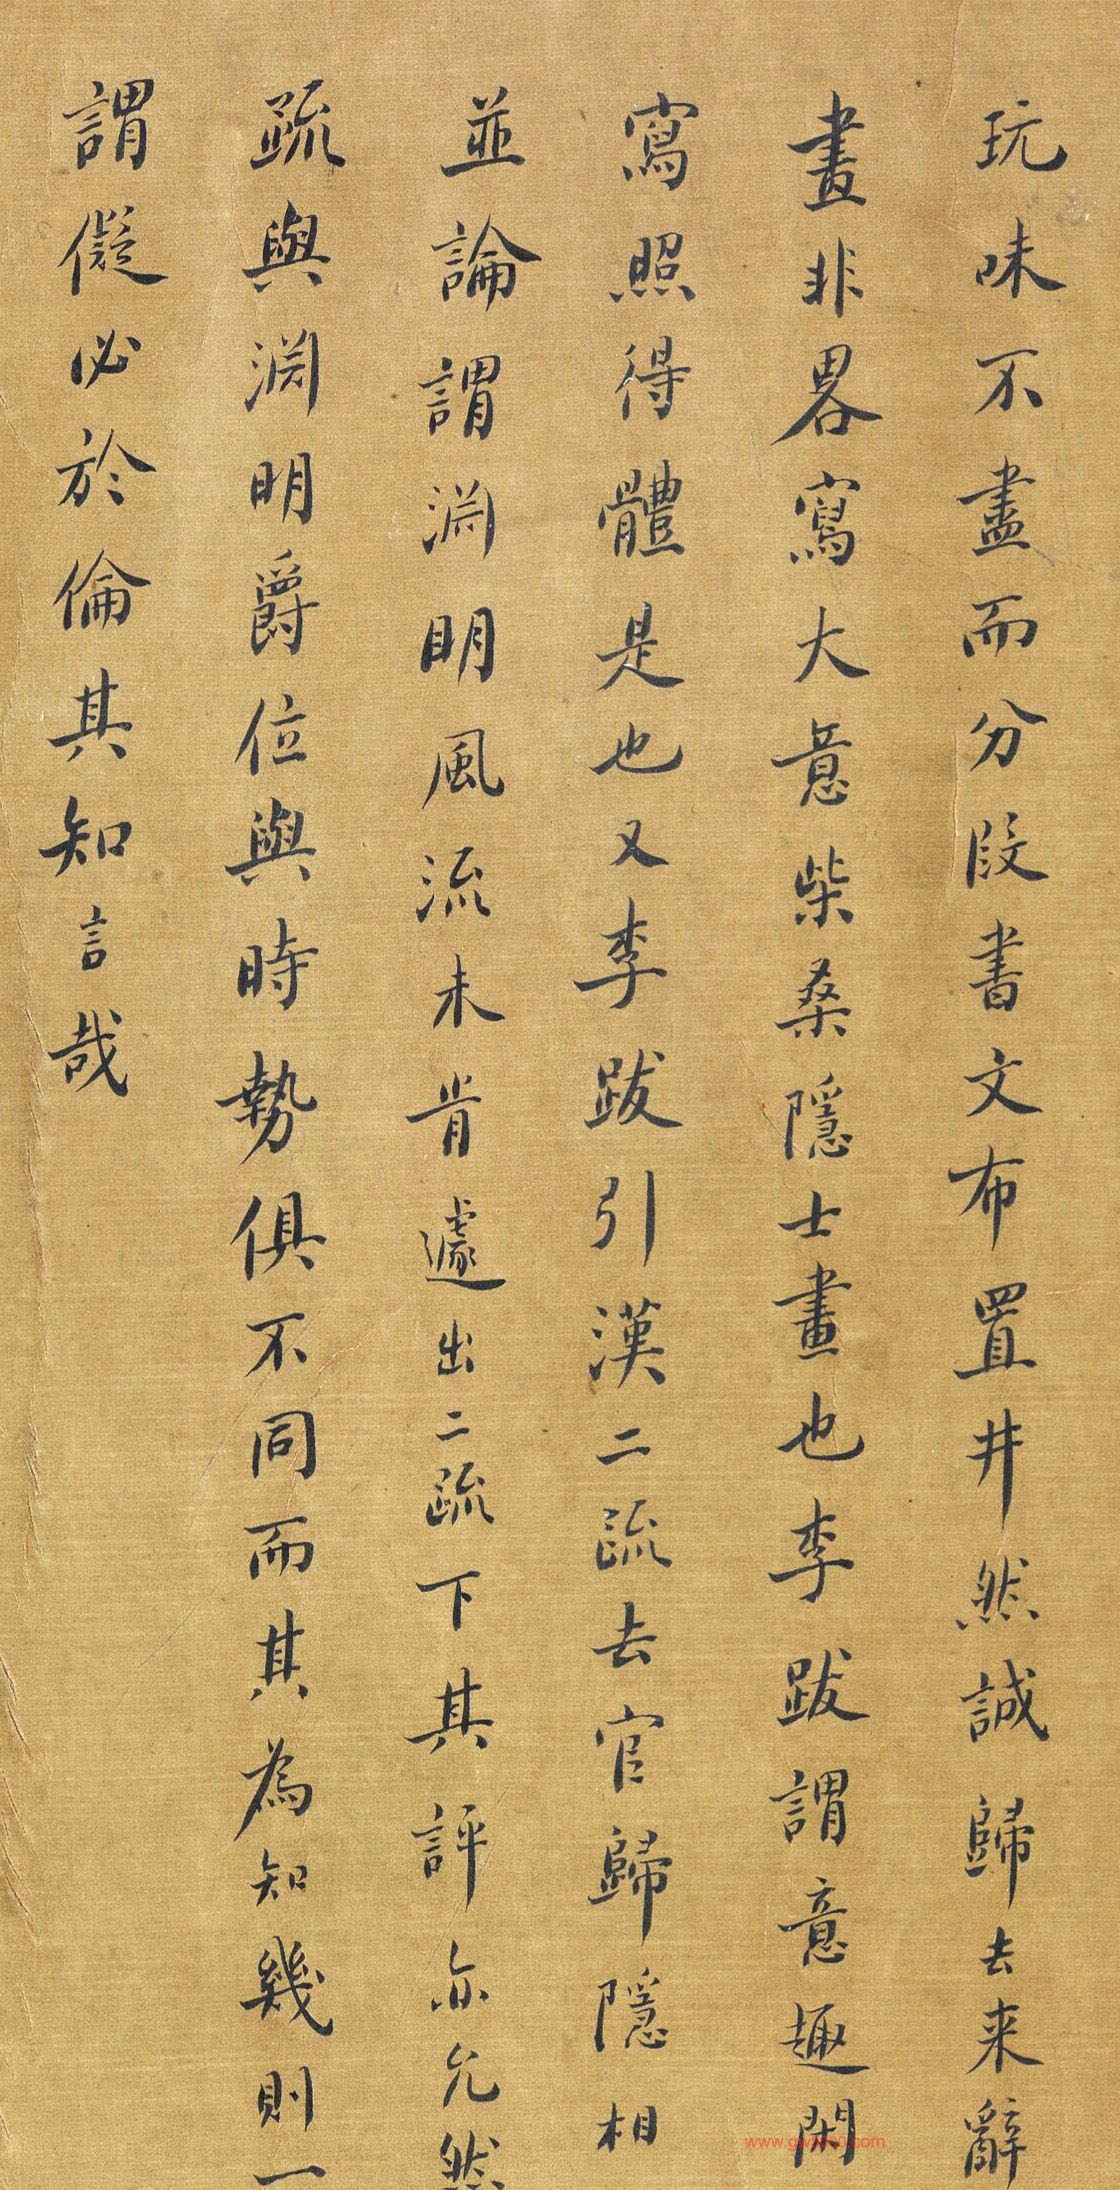 玩味不盡而分段書文布置井然誠歸去来辭
畫非畧寫大意柴桑隱士畫也李跋謂意趣閑
寫照得體是也又李跋引漢二疏去官歸隱相
並論謂淵明風流未肯遽出二疏下其評亦允然
疏與淵明爵位與時勢俱不同而其為知幾則一
謂儗必於倫其知言哉